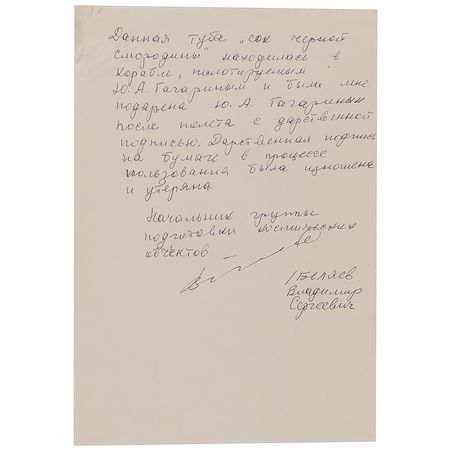 Данная туба „сок черной
смородины" находилась в
корабле, пилотируемым
Ю. А. Гагариным и была мне
подарена Ю. А. Гагариным
после полета с дарственной
подписью. Дарственная подпись
на бумаге в процессе
пользования была изношена
и утеряна.
Начальник группы
подготовки космических
объектов
/Беляев
Владимир
Сергеевич